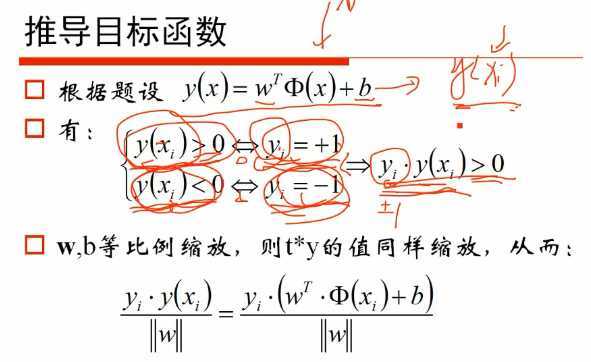 推导目标函数
y(xᵢ)
根据题设 y(x) = wᵀΦ(x) + b
有：
y(xᵢ) > 0 ⇔ yᵢ = +1
y(xᵢ) < 0 ⇔ yᵢ = −1
⇒ yᵢ · y(xᵢ) > 0
±1
w,b等比例缩放，则t*y的值同样缩放，从而：
yᵢ · y(xᵢ) / ‖w‖ = yᵢ · (wᵀ · Φ(xᵢ) + b) / ‖w‖